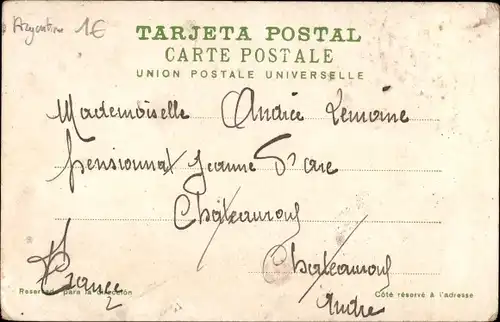 Argentine 1€
TARJETA POSTAL
CARTE POSTALE
UNION POSTALE UNIVERSELLE
Mademoiselle Andrée Lemoine
pensionnat Jeanne D'arc
Chateauroux
Chateauroux
France
Indre
Reservado para la dirección
Côté réservé à l'adresse